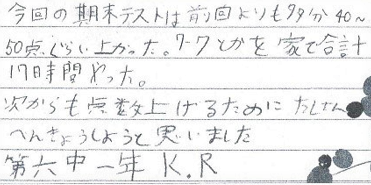 今回の期末テストは前回よりも多分40～
50点ぐらい上がった。ワークとかを家で合計
17日時間やった。
次からも点数上げるために たくさん
べんきょうしようと思いました
第六中一年 K.R